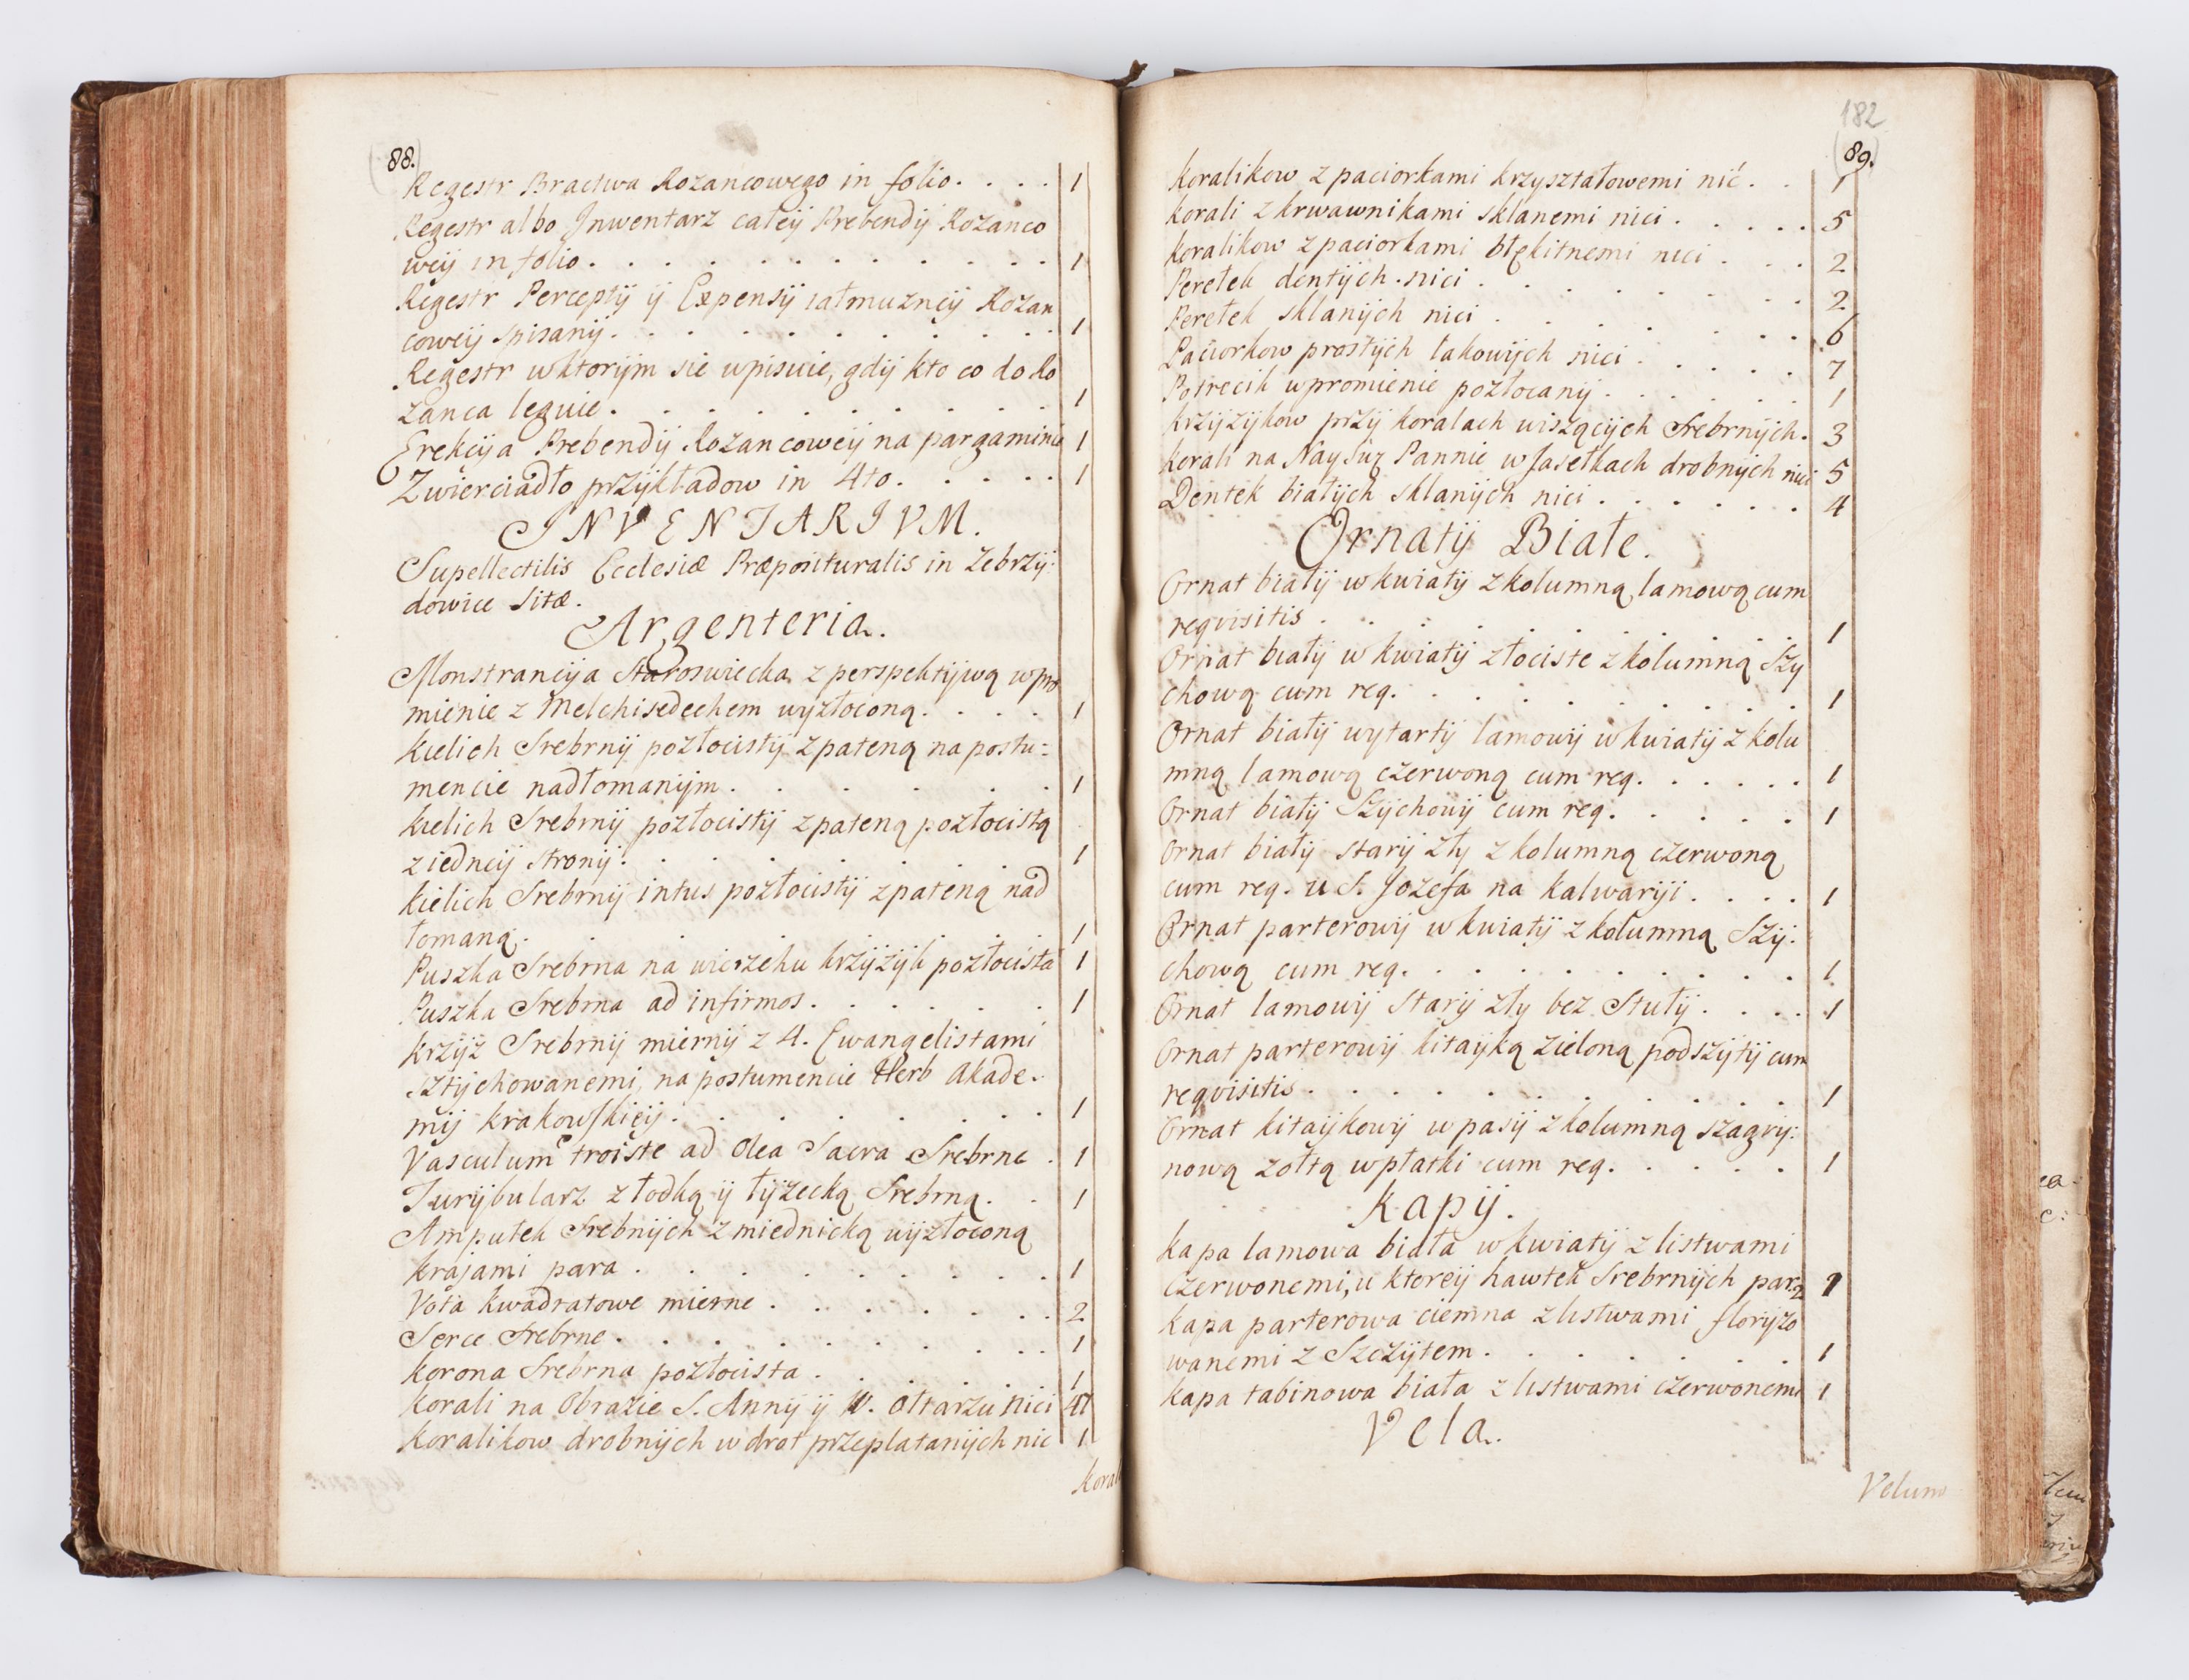 88.
Regestr Bractwa Rozancowego in folio. . . . 1
Regestr albo Inwentarz całeÿ Prebendÿ Rozanco
weÿ in folio. . . . . . . . . . . 1
Regestr Perceptÿ ÿ Expensÿ iałmuzneÿ Rozan
coweÿ spisanÿ. . . . . . . . . . 1
Regestr wktorÿm sie wpisuie, gdÿ kto co do Ro
zanca leguie. . . . . . . . . . 1
Erekcÿa Prebendÿ Rozancoweÿ na pargaminie 1
Zwierciadło przÿkładow in 4to. . . . . 1
INVENTARIVM.
Supellectilis Ecclesiæ Præposituralis in Zebrzÿ:
dowice sitæ.
Argenteria.
Monstrancÿa Staroswiecka z perspektÿwą wpro
mienie z Melchisedechem wyzłoconą. . . . 1
kielich Srebrnÿ pozłocistÿ zpateną na postu:
mencie nadłomanÿm. . . . . . . 1
kielich Srebrnÿ pozłocistÿ zpateną pozłocistą
z iedneÿ stronÿ. . . . . . . . 1
kielich Srebrnÿ intus pozłocistÿ zpateną nad
łomaną. . . . . . . . 1
Puszka Srebrna na wierzchu krzÿzÿk pozłocista 1
Puszka Srebrna ad infirmos. . . . . . 1
krzÿz Srebrnÿ miernÿ z 4. Ewangelistami
sztÿchowanemi, na postumencie Herb Akade:
mÿ krakowskieÿ. . . . . . . . 1
Vasculum troiste ad Olea Sacra Srebrne . 1
Turÿbularz z łodką ÿ łÿzecką Srebrną. . 1
Ampułek Srebnÿch z miednicką wÿzłoconą
krajami para . . . . . . . . 1
Vota kwadratowe mierne . . . . . . 2
Serce Srebrne. . . . . . . . . 1
korona Srebrna pozłocista . . . . . 1
korali na Obrazie S. Annÿ ÿ W. Ołtarzu nici 47
koralikow drobnÿch w drot przeplatanÿch nic 1
koral
182
89.
koralikow z paciorkami krzyształowemi nić. . 1
korali z krwawnikami sklanemi nici. . . . . 5
koralikow z paciorkami błękitnemi nici . . . 2
Perełek dentÿch nici . . . . . . . 2
Perełek sklanÿch nici . . . . . . 6
Paciorkow prostÿch takowÿch nici . . . . 7
Posrecik wpromienie pozłocanÿ. . . . . 1
krzÿzÿkow przÿ koralach wiszącÿch Srebrnÿch. 3
korali na Nayswę Pannie w Jasełkach drobnÿch nici 5
Dentek białÿch sklanÿch nici . . . . . . 4
Ornatÿ Białe.
Ornat białÿ w kwiatÿ z kolumną lamową cum
reqvisitis . . . . . . . . . 1
Ornat białÿ w kwiatÿ złociste z kolumną Szy
chową cum req. . . . . . . . . 1
Ornat białÿ wytartÿ lamowÿ w kwiatÿ z kolu
mną lamową czerwoną cum req. . . . . . 1
Ornat białÿ Szÿchowÿ cum req. . . . . 1
Ornat białÿ starÿ zły z kolumną czerwoną
cum req. u S. Jozefa na kalwariji. . . . 1
Ornat parterowÿ w kwiatÿ z kolumną Szÿ:
chową cum req. . . . . . . . . 1
Ornat lamowÿ starÿ zły bez Stułÿ. . . . 1
Ornat parterowÿ kitayką zieloną podszÿtÿ cum
reqvisitis . . . . . . . . . 1
Ornat kitaÿkowÿ w pasÿ z kolumną szagrÿ:
nową zołtą wpłatki cum req. . . . . 1
Kapÿ.
kapa lamowa biała w kwiatÿ z listwami
czerwonemi, u ktoreÿ hawtek Srebrnÿch par. 2 1
kapa parterowa ciemna z listwami florÿzo
wanemi z Szczÿtem. . . . . . . . 1
kapa tabinowa biała z listwami czerwonemi 1
Vela.
Velum